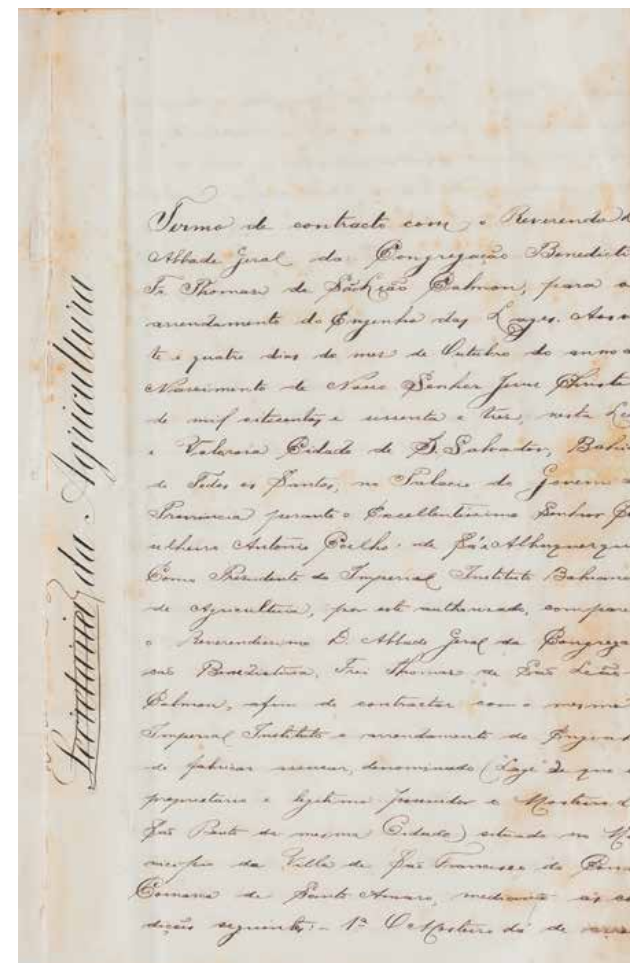 Secretaria da Agricultura
Termo de contracto com o Reverendo D
Abbade Geral da Congregação Benedicti
Fr. Thomas de São Leão Calmon, para o
arrendamento do Engenho das Lages. Aos vin
te e quatro dias do mes de Outubro do anno d
Nascimento de Nosso Senhor Jesus Christo
de mil oitocentos e sessenta e tres, nesta Lea
e Valorosa Cidade de S. Salvador, Bahia
de Todos os Santos, no Palacio do Governo d
Provincia perante o Excellentissimo Senhor Con
selheiro Antonio Coelho de Sá e Albuquerque
Como Presidente do Imperial Instituto Bahiano
de Agricultura, por este authorisado, compare
o Reverendissimo D. Abbade Geral da Congrega
ção Benedictina, Frei Thomas de São Leão
Calmon, afim de contractar com o mesmo
Imperial Instituto o arrendamento do Engenho
de fabricar assucar, denominado (Lage de que é
proprietario e legitimo possuidor o Mosteiro d
São Bento da mesma Cidade) situado no Mu
nicipio da Villa de São Francisco da
Comarca de Santo Amaro, mediante as co
dições seguintes: – 1ª O Mosteiro dá de